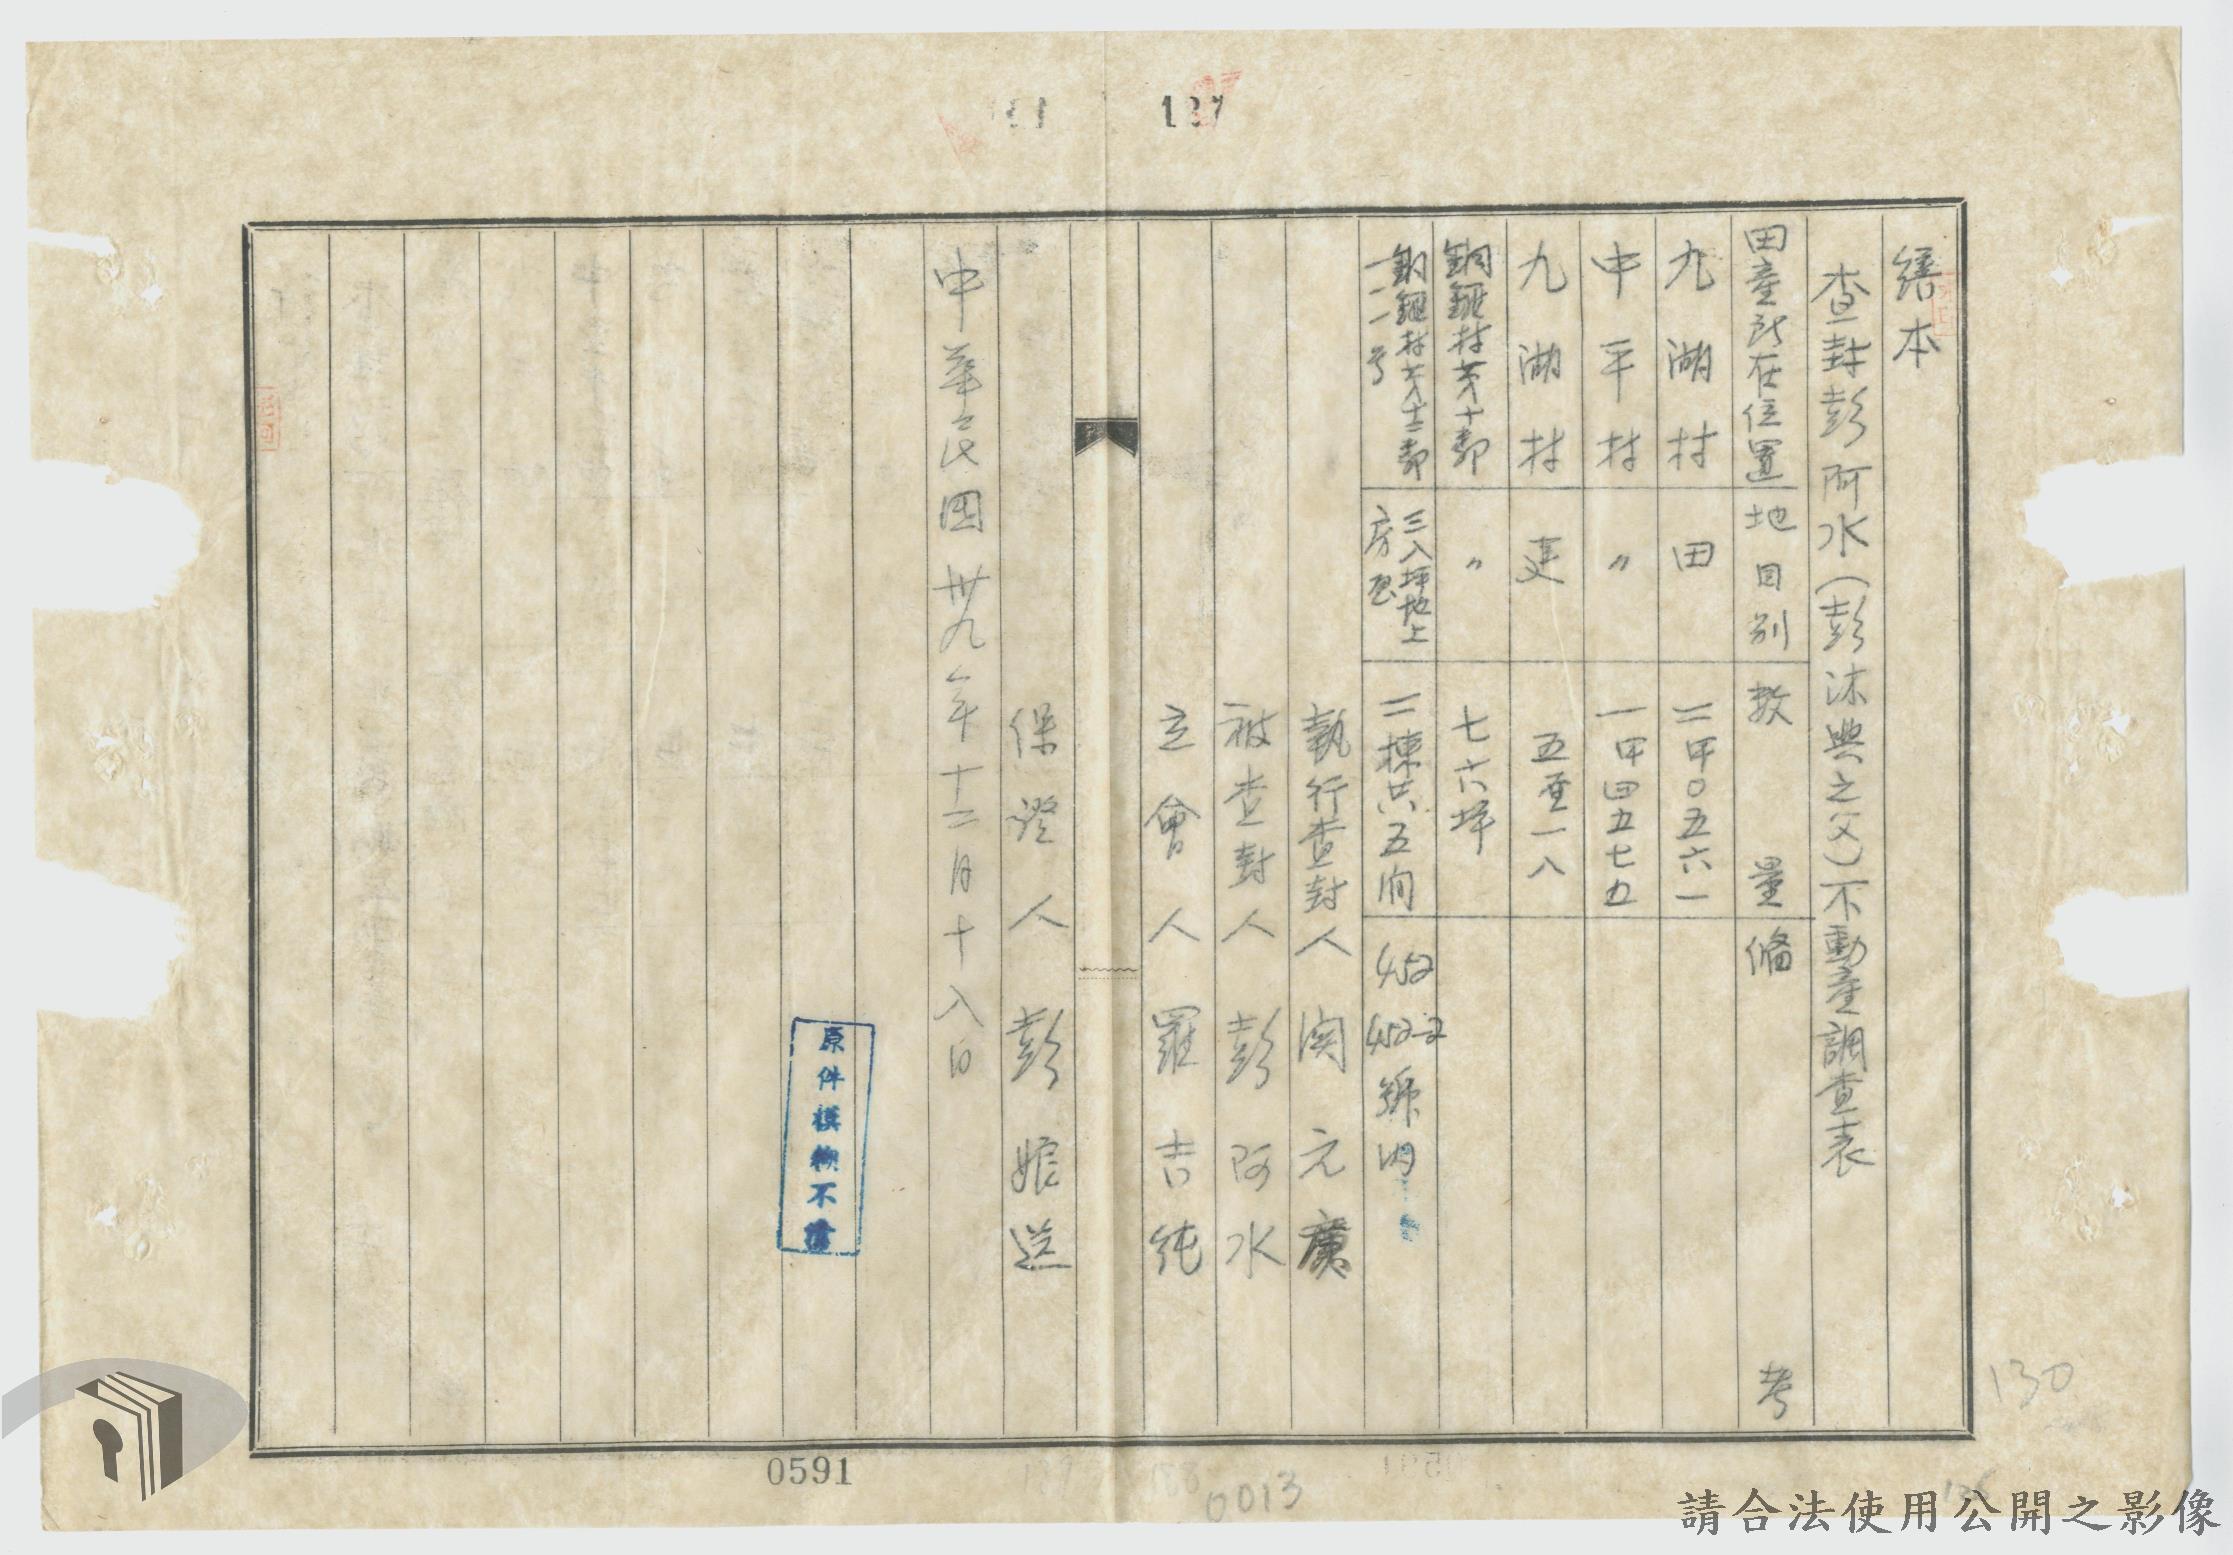 繕本
查封彭阿水(彭沐興之父)不動產調查表
田產所在位置 地目別 數量 備考
九湖村 田 二甲〇五六一
中平村 〃 一甲四五七五
九湖村 建 五至一八
銅鑼村第十鄰 〃 七六坪
銅鑼村第十二鄰一二一号 三八坪地上房屋 二棟共五间 452 452-2 號内
執行查封人 関元廣
被查封人 彭阿水
立會人 羅吉純
保證人 彭娘送
中華民國卅九年十二月十八日
原件模糊不清
187
0591
0013
130
請合法使用公開之影像